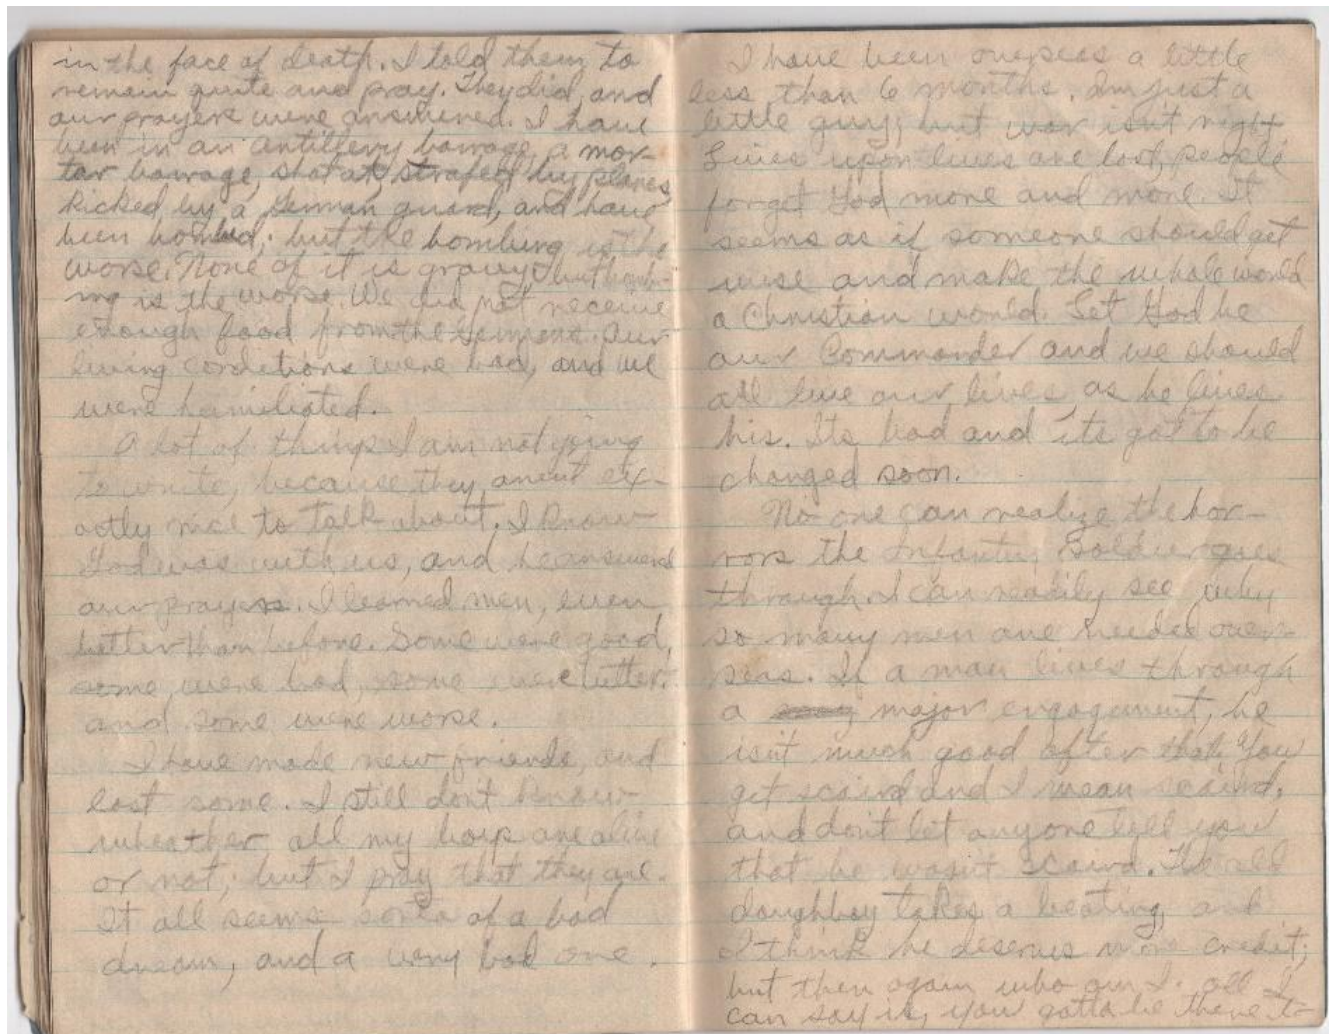 in the face of death. I told them to
remain quite and pray. They did, and
our prayers were answered. I have
been in an artillery barrage, a mor-
tar barrage, shot at, strafed by planes,
kicked by a German guard, and have
been bombed; but the bombing is the
worse. None of it is gravy, but bomb-
ing is the worse. We did not receive
enough food from the Germans. Our
living conditions were bad, and we
were hamiliated.
A lot of things I am not going
to write, because they arent ex-
actly nice to talk about. I know
God was with us, and he answered
our prayers. I learned men, even
better than before. Some were good,
some were bad, some were better,
and some were worse.
I have made new friends, and
lost some. I still don't know
wheather all my boys are alive
or not; but I pray that they are.
It all seems sorta of a bad
dream, and a very bad one.
I have been overseas a little
less than 6 months. Im just a
little guy, but war isn't right
Lives upon lives are lost, people
forget God more and more. It
seems as if someone should get
wise and make the whole world
a Christian world. Let God be
our Commander and we should
all live our lives as he lives
his. Its bad and its got to be
changed soon.
No one can realize the hor-
rors the Infantry Soldier goes
through. I can readily see why
so many men are needed over-
seas. If a man lives through
a major engagement, he
isn't much good after that. You
get scaird and I mean scaird,
and don't let anyone tell you
that he wasn't scaird. The old
doughboy takes a beating, and
I think he deserves more credit;
but then again who am I. all I
can say is, you gotta be there to